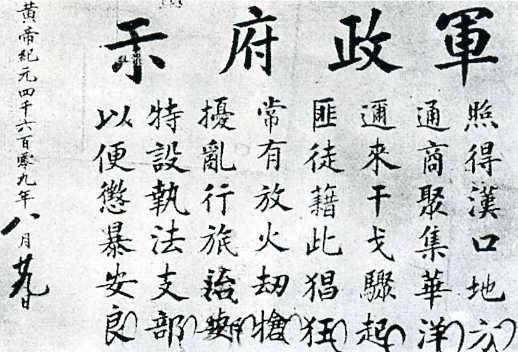 軍政府示
照得漢口地方
通商聚集華洋
邇來干戈驟起
匪徒藉此猖狂
常有放火刧搶
擾亂行旅治
特設執法支部
以便懲暴安良
黃帝紀元四千六百零九年八月廿九日